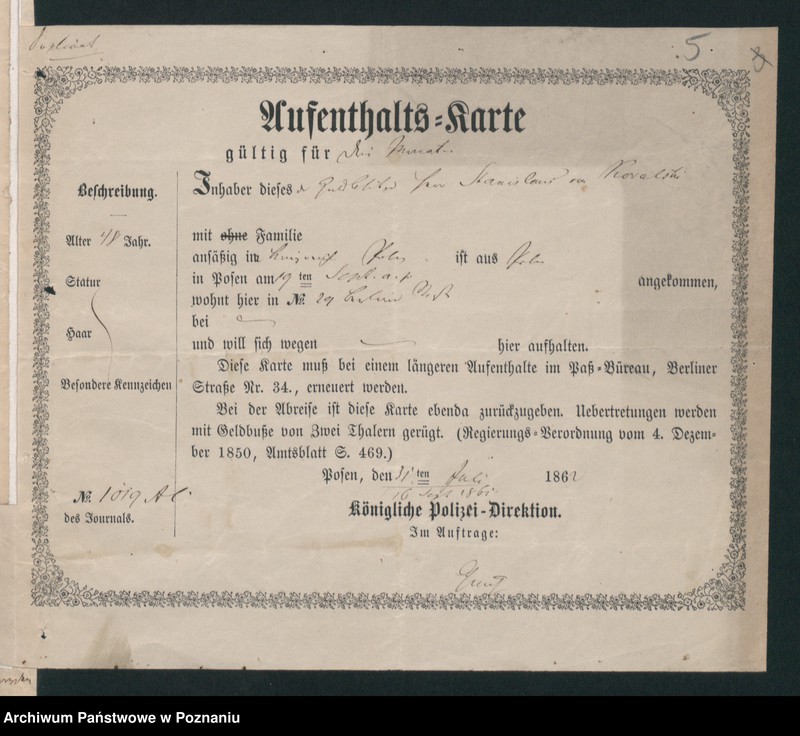 Duplicat
5
8
Aufenthalts-Karte
gültig für drei Monate
Beschreibung.
Inhaber dieses Herr Stanislaus von Kowalski
Alter 48 Jahr.
mit ohne Familie
ansäßig im Königreich Polen. ist aus Polen
Statur
in Posen am 19 ten Sept. angekommen,
wohnt hier in No. 29
Haar
bei
und will sich wegen hier aufhalten.
Diese Karte muß bei einem längeren Aufenthalte im Paß-Büreau, Berliner
Besondere Kennzeichen
Straße Nr. 34., erneuert werden.
Bei der Abreise ist diese Karte ebenda zurückzugeben. Uebertretungen werden
mit Geldbuße von Zwei Thalern gerügt. (Regierungs-Verordnung vom 4. Dezem-
ber 1850, Amtsblatt S. 469.)
Posen, den 31 ten Juli 1862
No. 1019
16 Sept 186
des Journals.
Königliche Polizei-Direktion.
Im Auftrage:
Archiwum Państwowe w Poznaniu